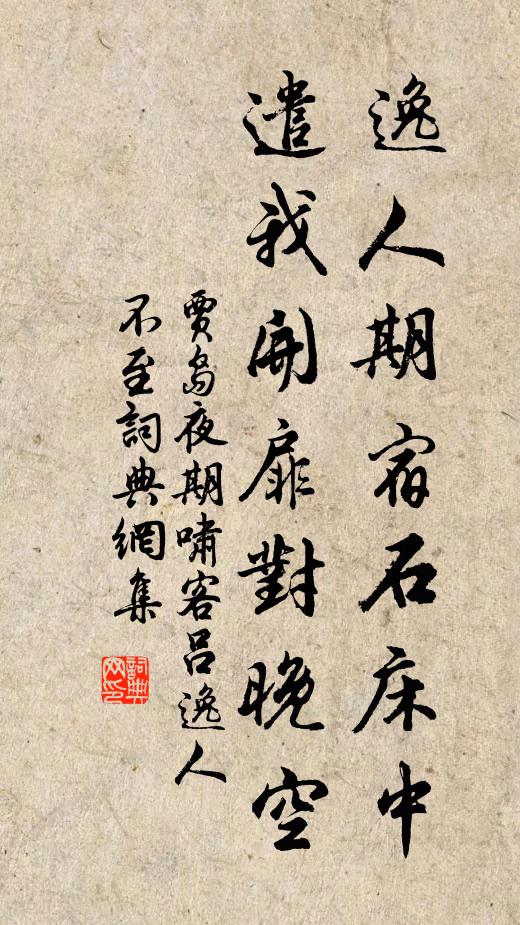 逸人期宿石床中
遣我開扉對晚空
賈島夜期嘯客吕逸人
不至詞典網集
詞典
网印